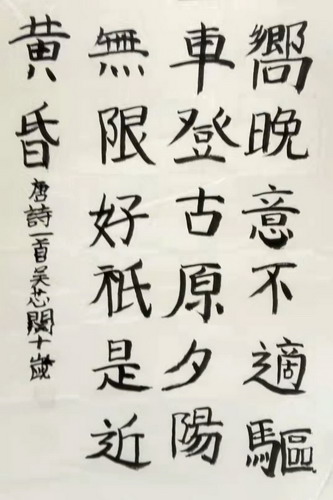 嚮晚意不適驅
車登古原夕陽
無限好祇是近
黄昏
唐詩一首吴芯閱十歲